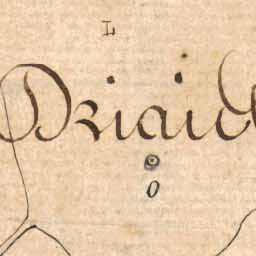 L
Driaid
o